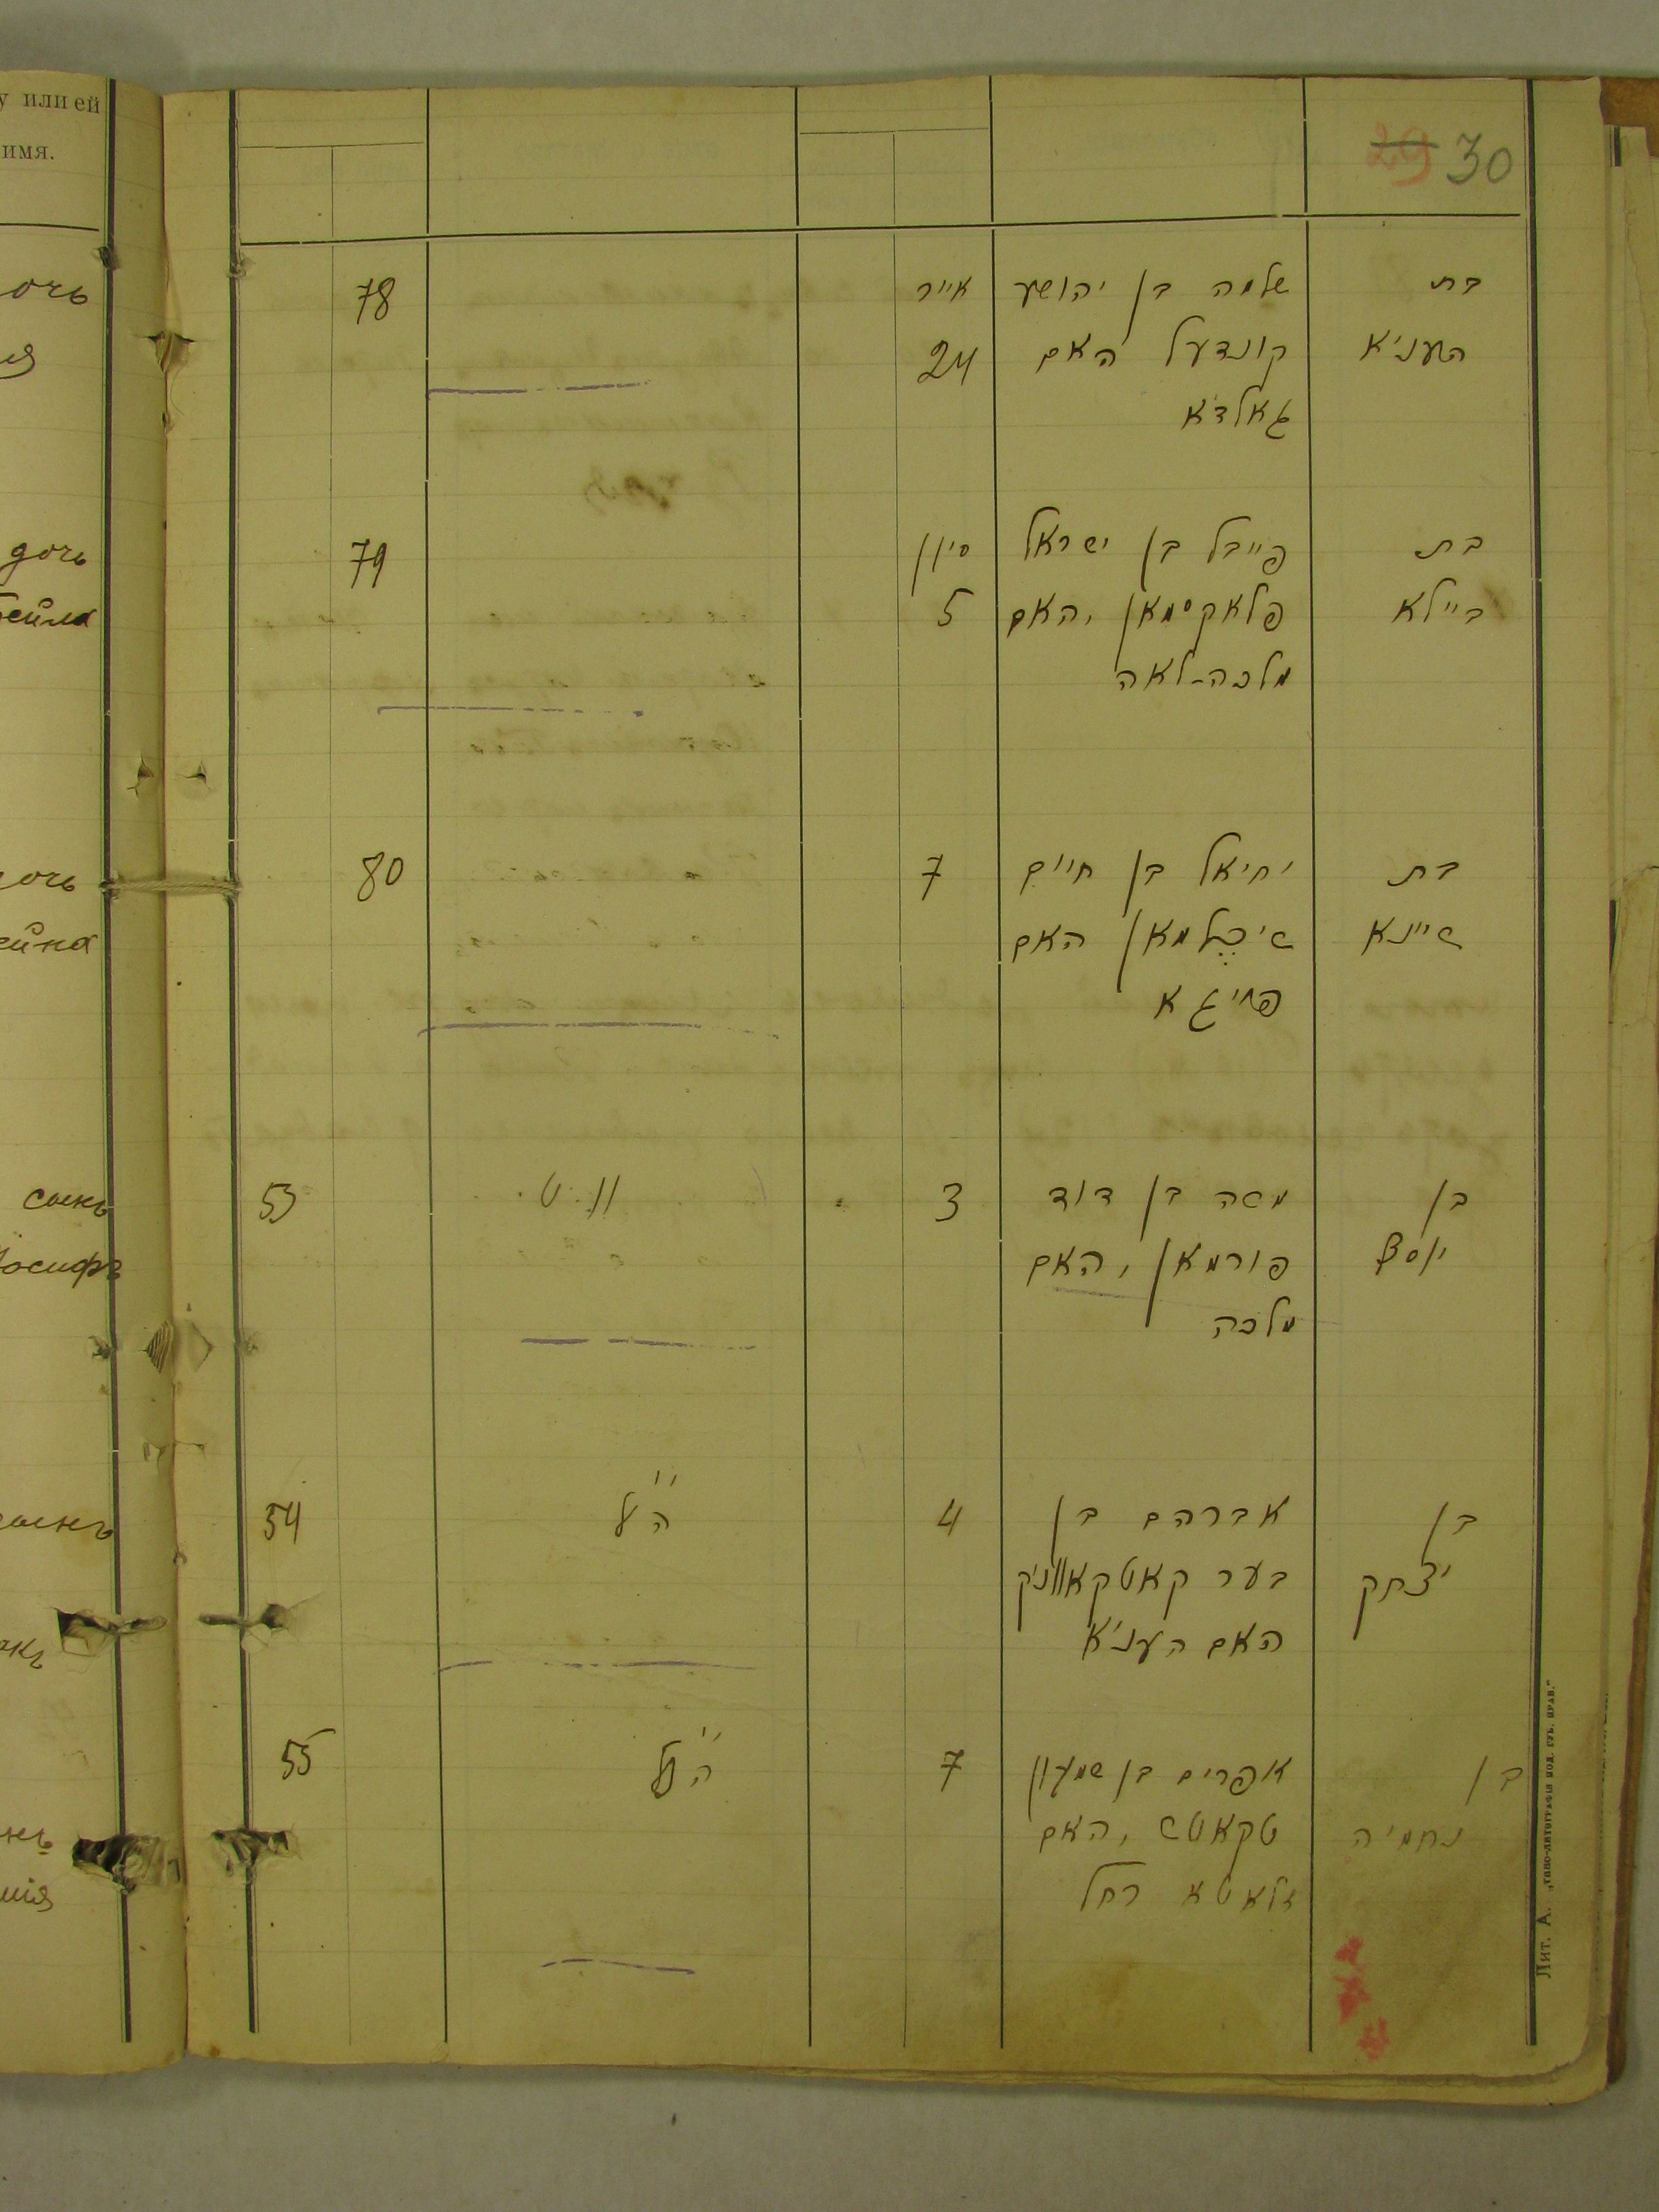 у или ей
имя.
29 30
очь
78
אייר
שלמה בן יהושע
בת
24
קונדעל האם
העניא
גאלדא
дочь
79
סיון
פייבל בן ישראל
בת
бейла
5
פלאקסמאן, האם
ביילא
מלכה-לאה
дочь
80
7
יחיאל בן חיים
בת
ейна
האם
שיינא
פייגא
сынъ
53
3
משה בן דוד
בן
Іосифъ
פורמאן, האם
יוסף
מלכה
сынъ
54
4
אברהם בן
בן
בער קאטקאווניק
יצחק
акъ
האם העניא
55
7
אפרים בן שמעון
בן
нъ
טקאטש, האם
נחמיה
мія
זלאטא רחל
Лит. А. „Типо-литографія под. губ. прав."